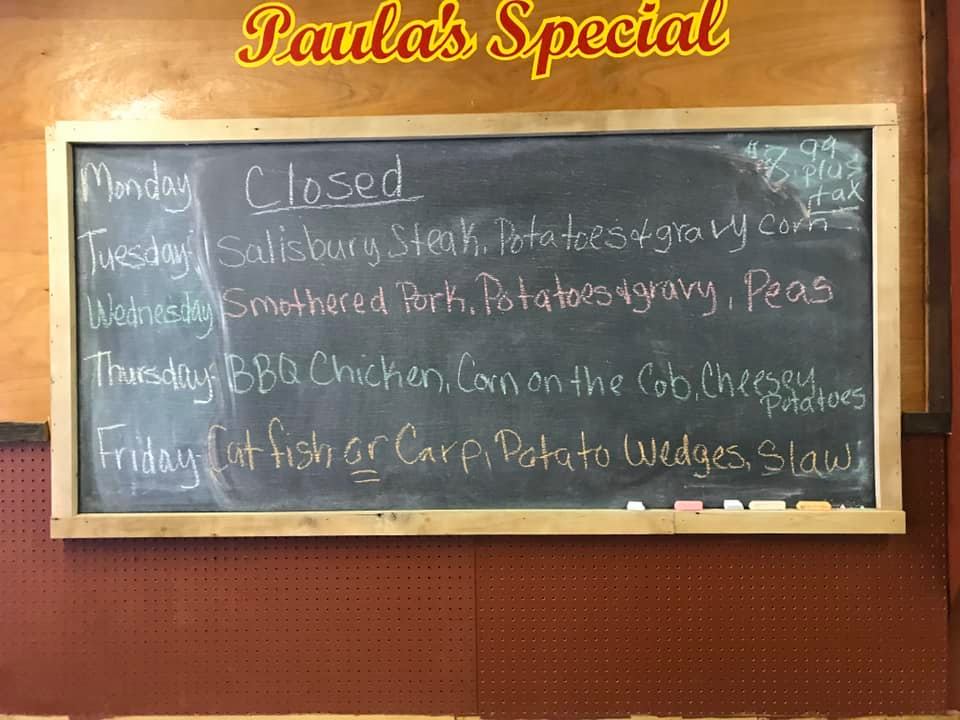 Paula's Special
$8.99
plus
tax
Monday Closed
Tuesday: Salisbury Steak, Potatoes & gravy corn
Wednesday Smothered Pork, Potatoes & gravy, Peas
Thursday: BBQ Chicken, Corn on the Cob, Cheesey
Potatoes
Friday Catfish or Carp, Potato Wedges, Slaw